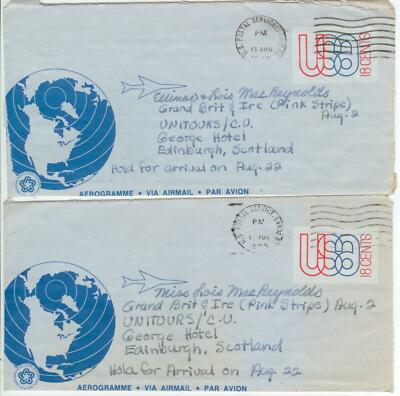 U.S. POSTAL SERVICE
PM
13 AUG
USA
18 CENTS
Lois MacReynolds
Grand Brit & Ire (Pink Stripe)
Aug. 2
UNITOURS/C.U.
George Hotel
Edinburgh, Scotland
Hold for arrival on Aug. 22
AEROGRAMME • VIA AIRMAIL • PAR AVION
U.S. POSTAL SERVICE
PM
AUG
USA
18 CENTS
Miss Lois MacReynolds
Grand Brit & Ire (Pink Stripe) Aug. 2
UNITOURS/C.U.
George Hotel
Edinburgh, Scotland
Hold for arrival on Aug. 22
AEROGRAMME • VIA AIRMAIL • PAR AVION